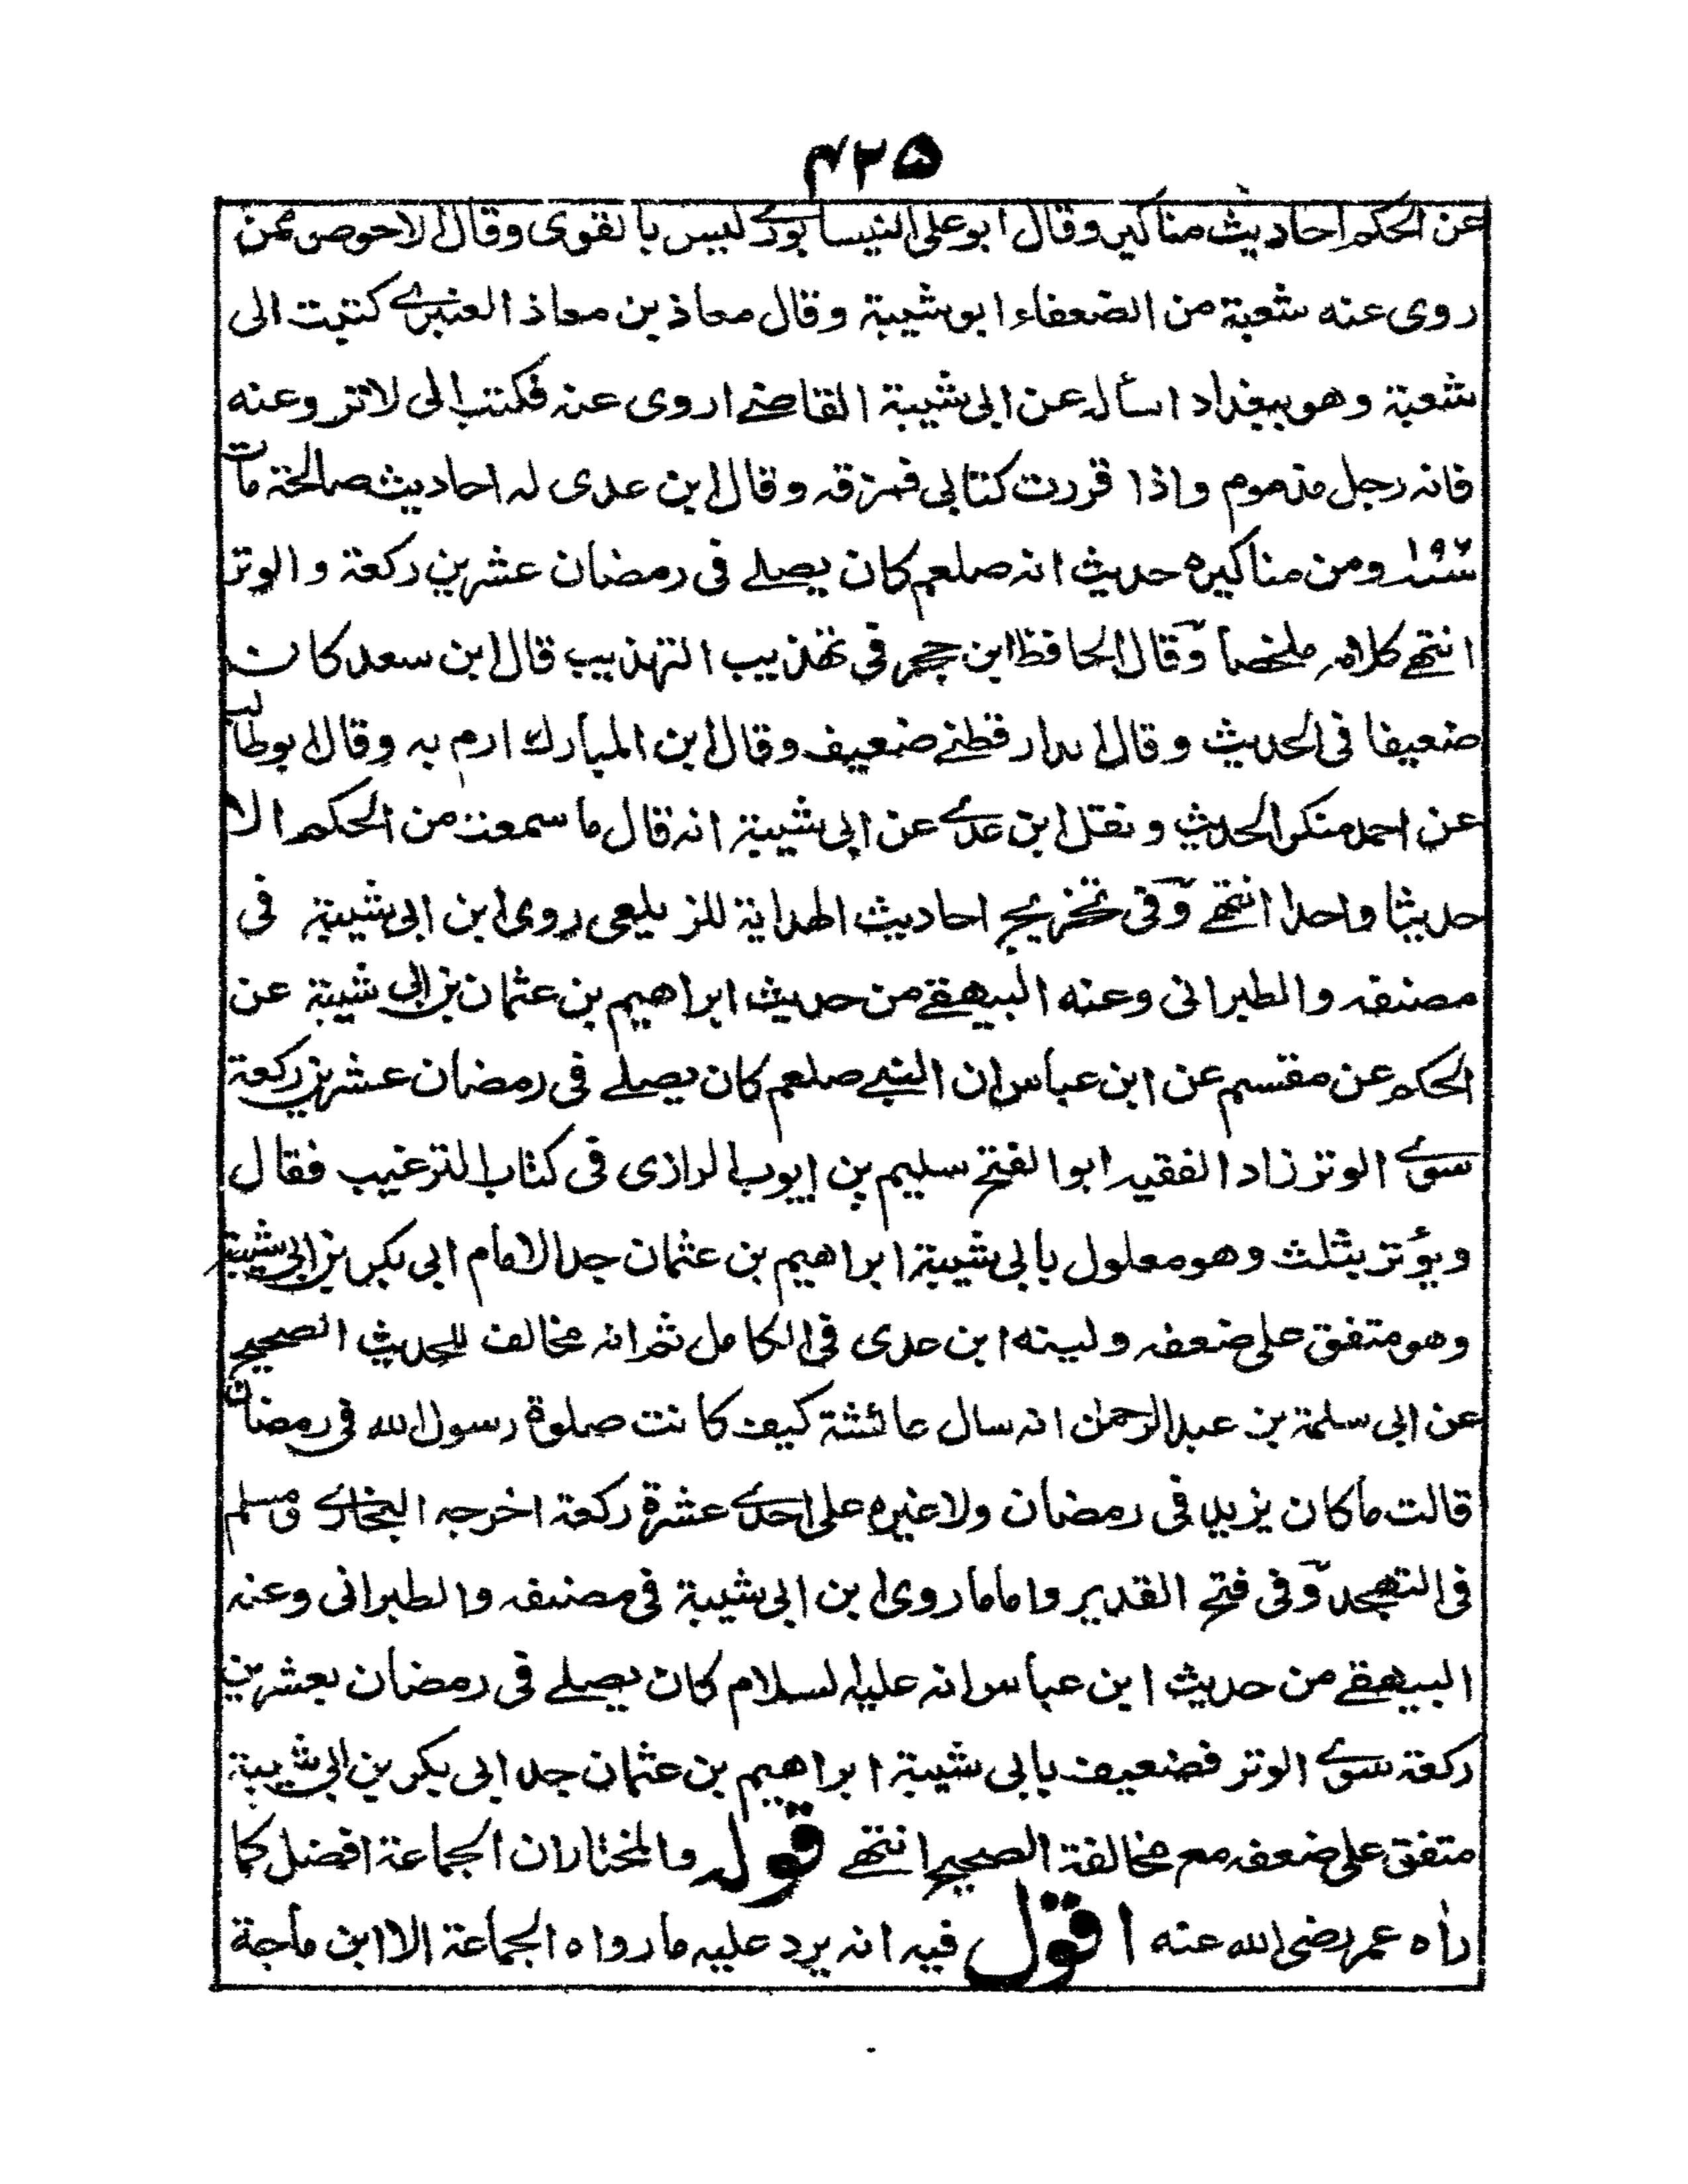 ۴۲۵
عن الحكم احاديث مناكير وقال ابو على النيسابورے ليس بالقوى وقال الاحوص ممن
روى عنه شعبة من الضعفاء ابو شيبة وقال معاذ بن معاذ العنبرے كتبت الى
شعبة وهو ببغداد اسأله عن ابى شيبة القاضے اروى عنه فكتب الى لا ترو عنه
فانه رجل مذموم واذا قررت كتابى فمزقه وقال ابن عدى له احاديث صالحة مات
سنه ۱۹۶ ومن مناكيره حديث انه صلعم كان يصلے فى رمضان عشرين ركعة والوتر
انتهے كلامه ملخصا وقال الحافظ ابن حجر فى تهذيب التهذيب قال ابن سعد كان
ضعيفا فى الحديث وقال الدارقطنے ضعيف وقال ابن المبارك ارم به وقال ابوطالب
عن احمد منكر الحديث ونقل ابن عدے عن ابى شيبة انه قال ما سمعت من الحكم الا
حديثا واحدا انتهے وفى تخريج احاديث الهداية للزيلعى روى ابن ابى شيبة فى
مصنفه والطبرانى وعنه البيهقے من حديث ابراهيم بن عثمان بن ابى شيبة عن
الحكم عن مقسم عن ابن عباس ان النبے صلعم كان يصلے فى رمضان عشرين ركعة
سوے الوتر زاد الفقيه ابو الفتح سليم بن ايوب الرازى فى كتاب الترغيب فقال
ويؤتر بثلث وهو معلول بابى شيبة ابراهيم بن عثمان جد الامام ابى بكر بن ابى شيبة
وهو متفق على ضعفه ولينه ابن عدى فى الكامل ثم انه مخالف للحديث الصحيح
عن ابى سلمة بن عبد الرحمن انه سال عائشة كيف كانت صلوة رسول الله فى رمضان
قالت ما كان يزيد فى رمضان ولا غيره على احدے عشرة ركعة اخرجه البخارے ومسلم
فى التهجد وفى فتح القدير واما ما روى ابن ابى شيبة فى مصنفه والطبرانى وعنه
البيهقے من حديث ابن عباس انه عليه السلام كان يصلے فى رمضان بعشرين
ركعة سوے الوتر فضعيف بابى شيبة ابراهيم بن عثمان جد ابى بكر بن ابى شيبة
متفق على ضعفه مع مخالفة الصحيح انتهے قوله والمختار ان الجماعة افضل كما
راه عمر رضى الله عنه اقول فيه انه يرد عليه ما رواه الجماعة الا ابن ماجة